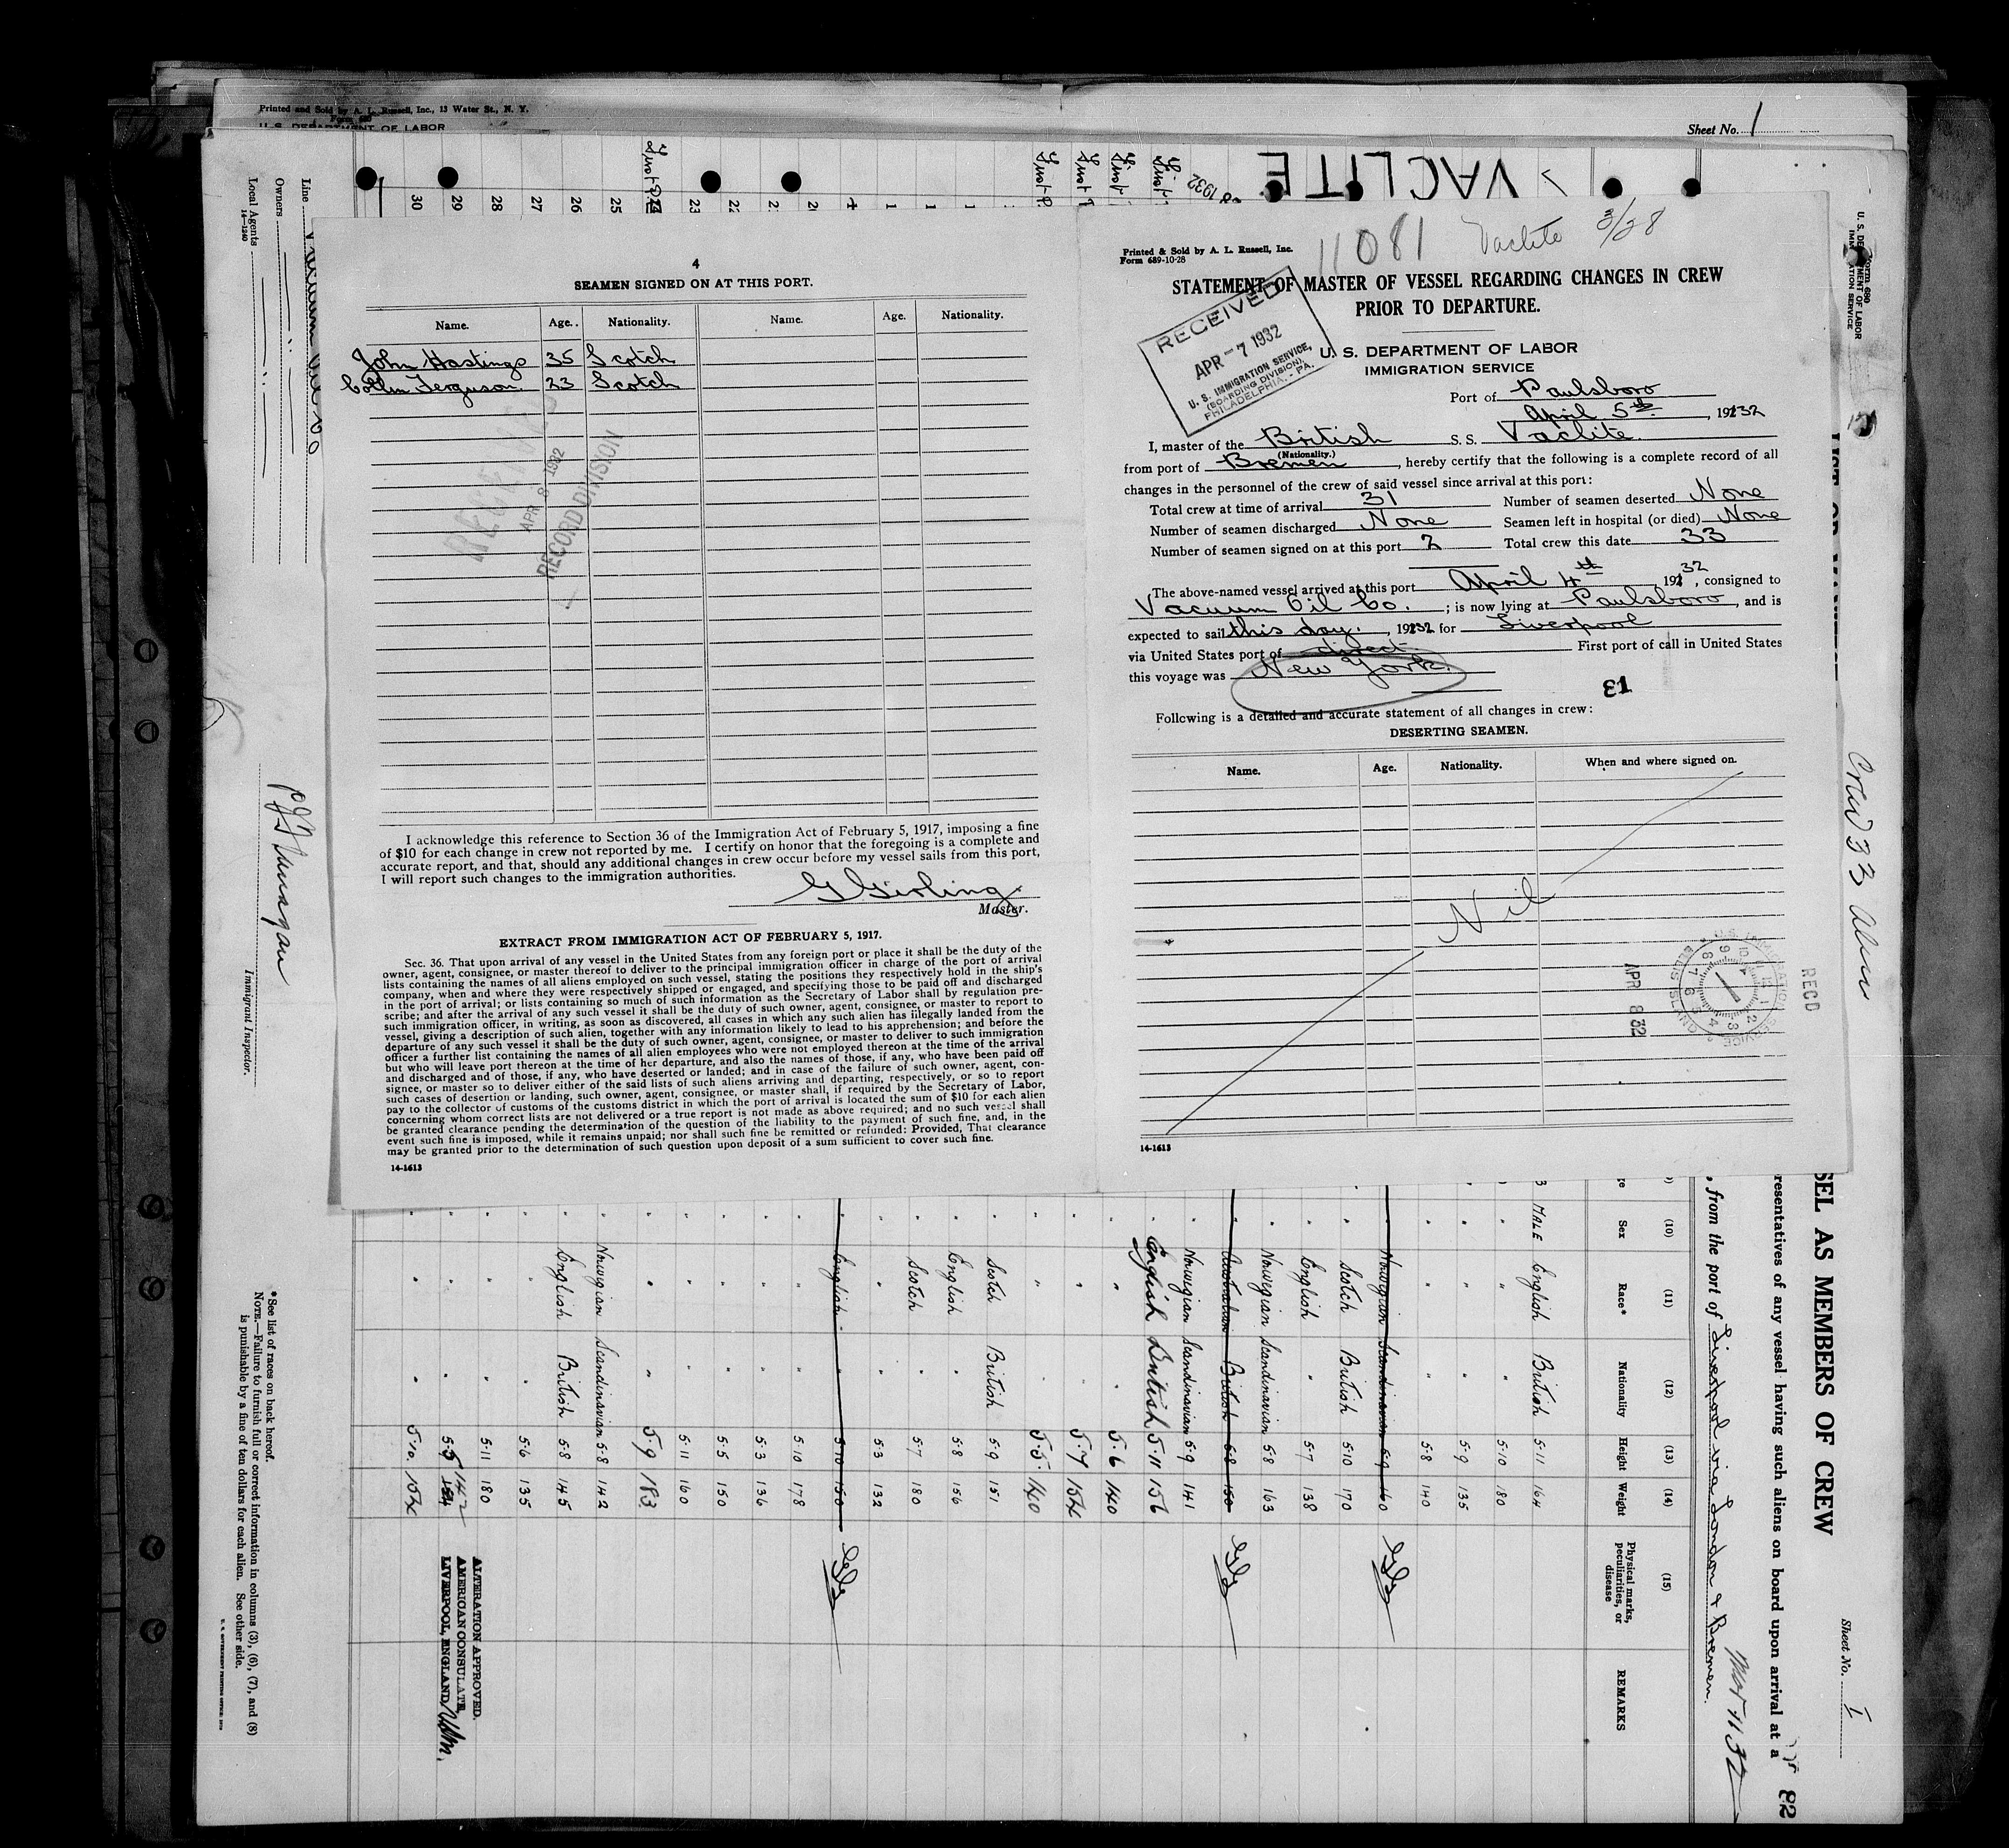 Printed and Sold by A. L. Russell, Inc., 13 Water St., N. Y.
Form 680
U. S. DEPARTMENT OF LABOR
Sheet No. 1
VACLITE
30
29
28
27
26
25
24
23
22
Line
Owners
Local Agents
14-1240
Immigrant Inspector.
4
SEAMEN SIGNED ON AT THIS PORT.
Name. Age. Nationality. Name. Age. Nationality.
John Hastings 35 Scotch
Collin Ferguson 23 Scotch
RECEIVED
APR 8 1932
RECORD DIVISION
I acknowledge this reference to Section 36 of the Immigration Act of February 5, 1917, imposing a fine
of $10 for each change in crew not reported by me. I certify on honor that the foregoing is a complete and
accurate report, and that, should any additional changes in crew occur before my vessel sails from this port,
I will report such changes to the immigration authorities.
G Girling
Master.
EXTRACT FROM IMMIGRATION ACT OF FEBRUARY 5, 1917.
Sec. 36. That upon arrival of any vessel in the United States from any foreign port or place it shall be the duty of the
owner, agent, consignee, or master thereof to deliver to the principal immigration officer in charge of the port of arrival
lists containing the names of all aliens employed on such vessel, stating the positions they respectively hold in the ship's
company, when and where they were respectively shipped or engaged, and specifying those to be paid off and discharged
in the port of arrival; or lists containing so much of such information as the Secretary of Labor shall by regulation pre-
scribe; and after the arrival of any such vessel it shall be the duty of such owner, agent, consignee, or master to report to
such immigration officer, in writing, as soon as discovered, all cases in which any such alien has illegally landed from the
vessel, giving a description of such alien, together with any information likely to lead to his apprehension; and before the
departure of any such vessel it shall be the duty of such owner, agent, consignee, or master to deliver to such immigration
officer a further list containing the names of all alien employees who were not employed thereon at the time of the arrival
but who will leave port thereon at the time of her departure, and also the names of those, if any, who have been paid off
and discharged and of those, if any, who have deserted or landed; and in case of the failure of such owner, agent, con-
signee, or master so to deliver either of the said lists of such aliens arriving and departing, respectively, or so to report
such cases of desertion or landing, such owner, agent, consignee, or master shall, if required by the Secretary of Labor,
pay to the collector of customs of the customs district in which the port of arrival is located the sum of $10 for each alien
concerning whom correct lists are not delivered or a true report is not made as above required; and no such vessel shall
be granted clearance pending the determination of the question of the liability to the payment of such fine, and, in the
event such fine is imposed, while it remains unpaid; nor shall such fine be remitted or refunded: Provided, That clearance
may be granted prior to the determination of such question upon deposit of a sum sufficient to cover such fine.
14-1613
Printed & Sold by A. L. Russell, Inc.
Form 689-10-28
11081 Vaclite 3/28
STATEMENT OF MASTER OF VESSEL REGARDING CHANGES IN CREW
PRIOR TO DEPARTURE.
RECEIVED
APR -7 1932
U. S. IMMIGRATION SERVICE,
(BOARDING DIVISION),
PHILADELPHIA, - PA.
U. S. DEPARTMENT OF LABOR
IMMIGRATION SERVICE
Port of Paulsboro
April 5th, 1932
I, master of the British S. S. Vaclite
(Nationality.)
from port of Bremen, hereby certify that the following is a complete record of all
changes in the personnel of the crew of said vessel since arrival at this port:
Total crew at time of arrival 31 Number of seamen deserted None
Number of seamen discharged None Seamen left in hospital (or died) None
Number of seamen signed on at this port 2 Total crew this date 33
The above-named vessel arrived at this port April 4th 1932, consigned to
Vacuum Oil Co. ; is now lying at Paulsboro, and is
expected to sail this day, 1932 for Liverpool
via United States port of direct First port of call in United States
this voyage was New York.
31
Following is a detailed and accurate statement of all changes in crew:
DESERTING SEAMEN.
Name. Age. Nationality. When and where signed on.
Nil
U.S. IMMIGRATION SERVICE ELLIS ISLAND
RECD
APR 8 32
14-1613
Crew 33
SEL AS MEMBERS OF CREW
resentatives of any vessel having such aliens on board upon arrival at a
, from the port of Liverpool via London & Bremen.
Sheet No. I
82
(10) (11) (12) (13) (14) (15)
Sex Race* Nationality Height Weight Physical marks, peculiarities, or disease REMARKS
MALE English British 5-11 164
" " " 5-10 180
" " " 5-9 135
" " " 5-8 140
" Norwegian Scandinavian 5-9 160
" Scotch British 5-10 170
" English " 5-7 138
" Norwegian Scandinavian 5-8 163
" Australian British 5-8 150
" Norwegian Scandinavian 5-9 141
" English British 5-11 156
" " " 5-6 140
" " " 5-7 154
" " " 5-5 140
" Scotch British 5-9 151
" English " 5-8 156
" Scotch " 5-7 180
" " " 5-3 132
" English " 5-10 150
" " " 5-10 178
" " " 5-3 136
" " " 5-5 150
" " " 5-11 160
" " " 5-9 183
" Norwegian Scandinavian 5-8 142
" English British 5-8 145
" " " 5-6 135
" " " 5-11 180
" " " 5-5 142
" " " 5-10 154
ALTERATION APPROVED.
AMERICAN CONSULATE,
LIVERPOOL, ENGLAND
*See list of races on back hereof.
NOTE.—Failure to furnish full or correct information in columns (3), (6), (7), and (8)
is punishable by a fine of ten dollars for each alien. See other side.